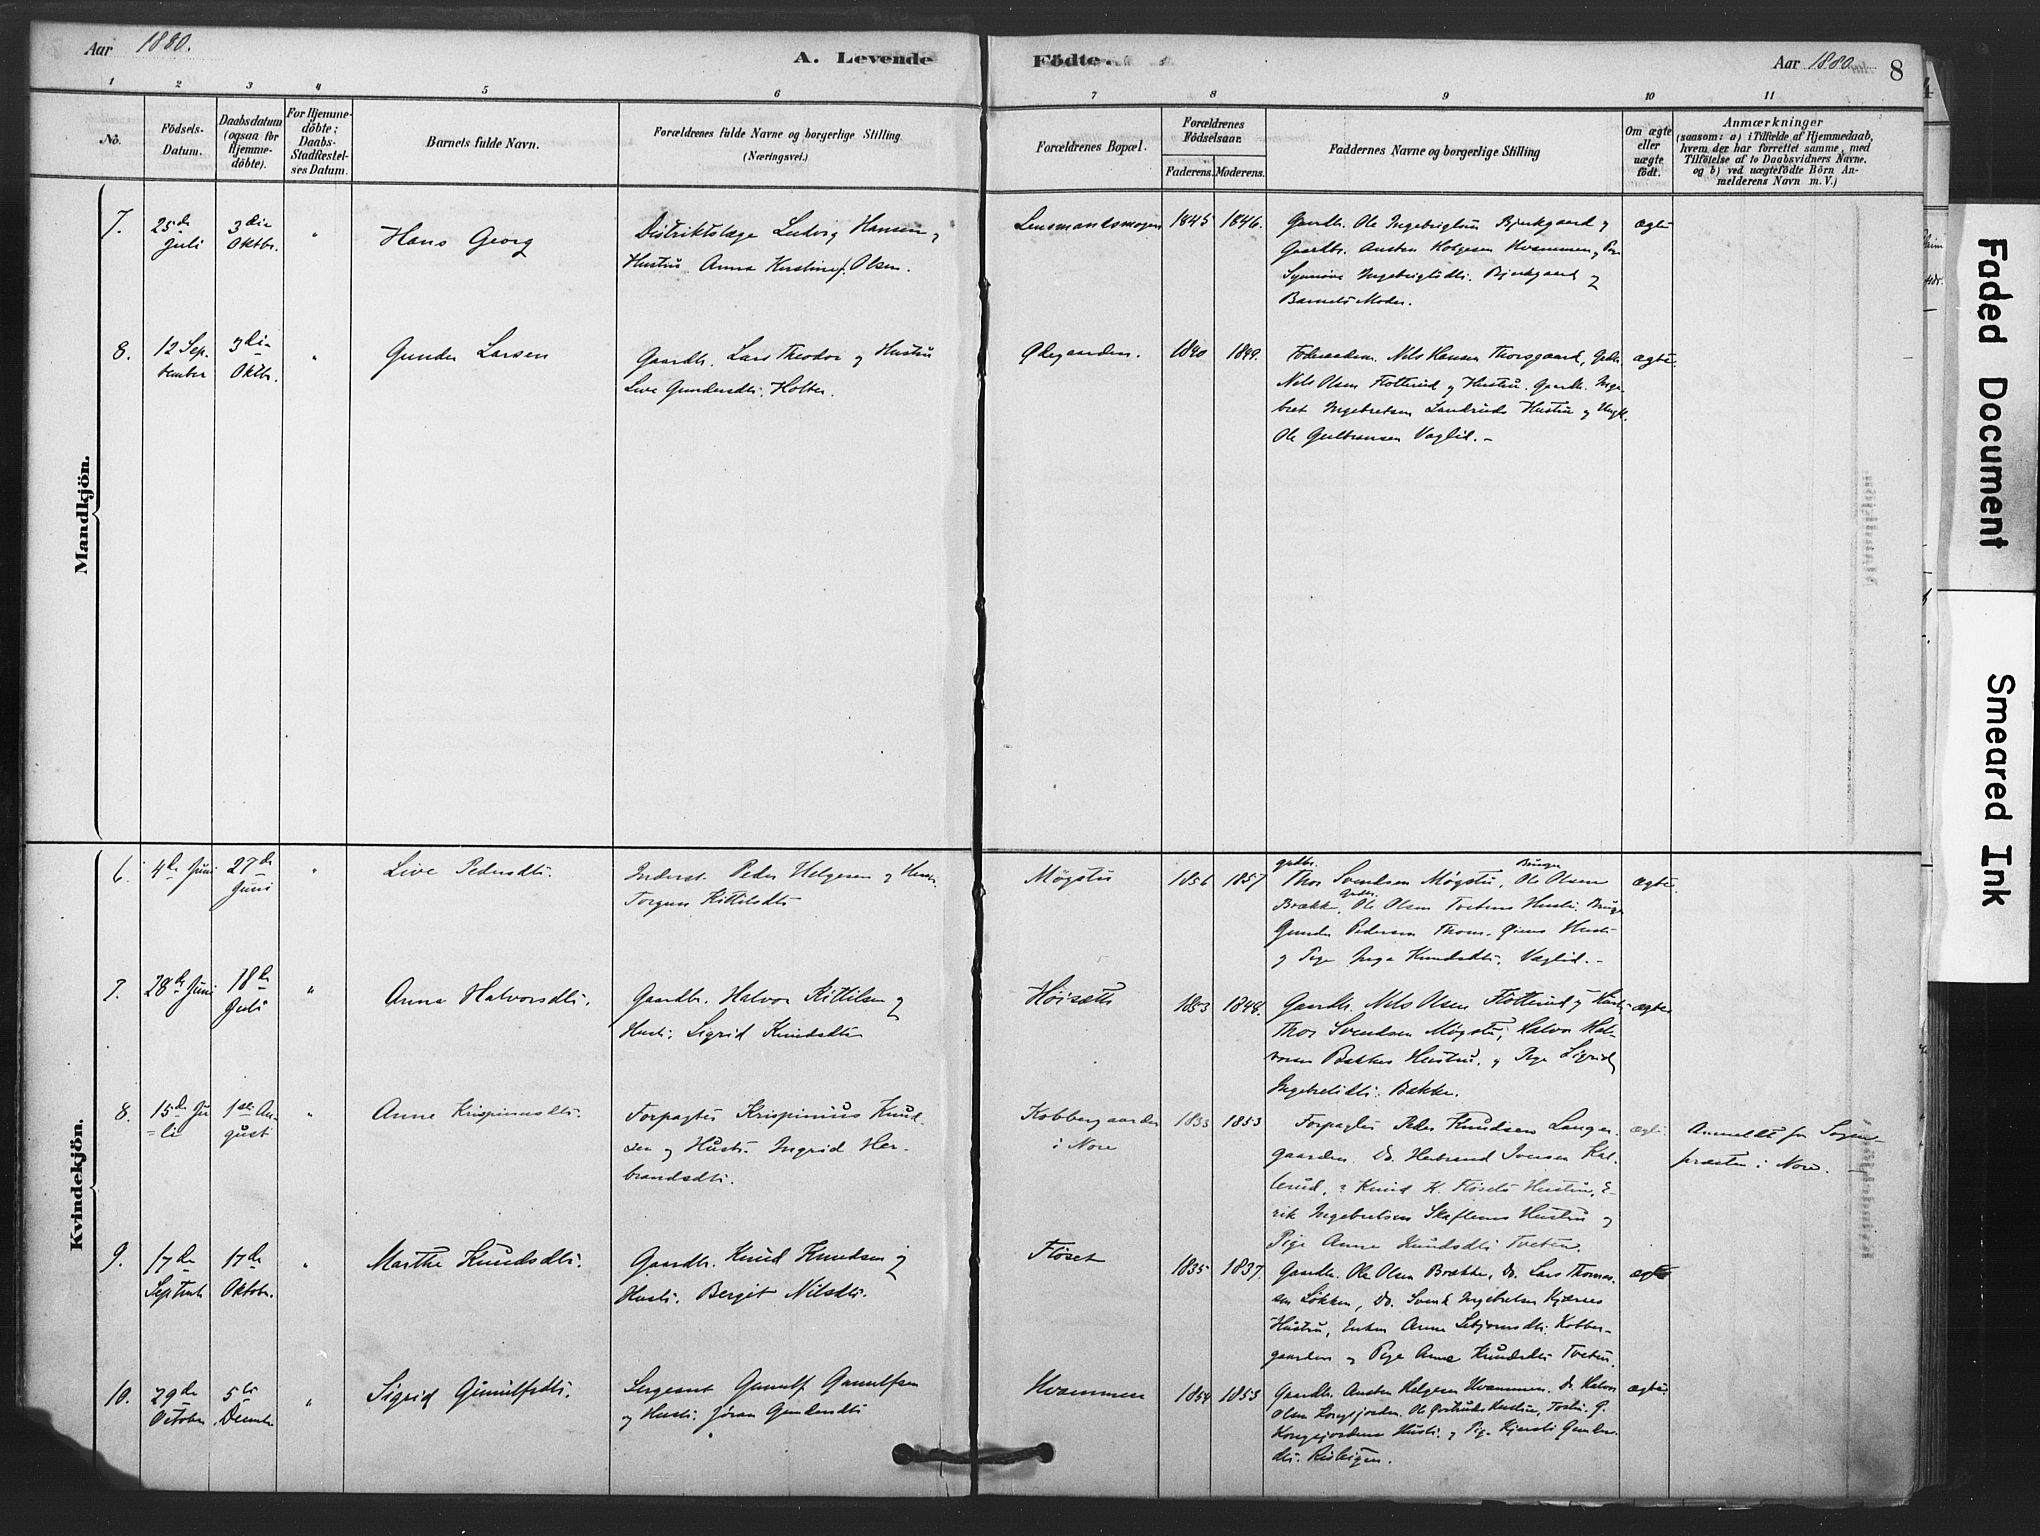 Aar 1880.
A. Levende
Födte.
Aar 1880
8
1 2 3 4 5 6 7 8 9 10 11
No.
Födsels-
Datum.
Daabsdatum
(ogsaa for
Hjemme-
döbte).
For Hjemme-
döbte;
Daabs-
Stadfæstel-
ses Datum.
Barnets fulde Navn.
Forældrenes fulde Navne og borgerlige Stilling
(Næringsvei.)
Forældrenes Bopæl.
Forældrenes
Födselsaar.
Faderens. Moderens.
Faddernes Navne og borgerlige Stilling
Om ægte
eller
uægte
födt.
Anmærkninger
(saasom: a) i Tilfælde af Hjemmedaab,
hvem der har forrettet samme, med
Tilföielse af to Daabsvidners Navne.
og b) ved uægtefödte Börn An-
melderens Navn m. V.)
Mandkjön.
7.
25de
Juli
3die
Oktbr.
"
Hans Georg
Distriktslæge Ludvig Hansen og
Hustru Anna Kirstine f. Olsen.
Lensmandsmogen
1845
1846.
Gaardbr. Ole Ingebrigtsen Bjerkgaard og
Gaardbr. Austen Helgesen Hvammen,
Synnöve Ingebrigtsdtr. Bjerkgaard og
Barnets Moder.
ægte
8.
12 Sep-
tember
3die
Oktbr.
"
Gunder Larsen
Gaardbr. Lars Theodor og Hustru
Live Gundersdtr. Holter.
Ødegaarden.
1840
1849.
Føderaadsm. Nils Hansen Thorsgaard, Gdbr.
Nils Olsen Fløtterud og Hustru. Gaardbr. Inge-
bret Ingebretsen Landruds Hustru og Ungk.
Ole Gulbransen Vaglid.-
ægte.
Kvindekjön.
6.
4de Juni
27de
Juni
"
Live Pedersdtr.
Inderst. Peder Helgesen og Hustr.
Torgun Kittilsdtr
Møgstu
1856
1857
gardbr. Bruger
Thor Svendsen Møgstu, Ole Olsen
Brække, Ole Olsen Tvetens Hustr. Brug.
Gunder Pedersen Thom- Øiens Hustr.
og Pige Inga Knudsdtr. Vaglid.-
ægte.
7.
28de Juni
18de
Juli
"
Anna Halvorsdtr.
Gaardbr. Halvor Kittilsen og
Hustr. Sigrid Knudsdtr
Høisæth
1853
1848.
Gaardbr. Nils Olsen Fløtterud og Hustr.
Thor Svendsen Møgstu, Halvor Hal-
vorsen Bakkes Hustru, og Pige Sigrid
Ingebretsdtr. Bakke.
ægte
8.
15de Ju-
li
1ste Au-
gust
"
Anne Krispinusdtr.
Forpagter Krispinius Knud-
sen og Hustr. Ingrid Her-
brandsdtr.
Kobbergaarden
i Nore
1833
1853
Forpagter Peder Knudsen Langer-
gaarden. Do. Herbrand Iversen Kal-
lerud, Knud K. Fløsets Hustru, E-
rik Ingebretsen Skaftens Hustru og
Pige Anne Knudsdtr Tveten.
ægte
Anmeldt for Sogne-
præsten i Nore.
9.
17de
Septembr
17de
Oktobr.
"
Marthe Knudsdtr.
Gaardbr. Knud Knudsen og
Hustr. Bergit Nilsdtr.
Fløset
1835
1837.
Gaardbr. Ole Olsen Brække, Do. Lars Thomas-
sen Løkken, Do. Svend Ingebretsen Kjærnes
Hustru, Enken Anne Sebjørnsdtr. Kobber-
gaarden og Pige Anne Knudsdtr Tveten.
ægte
10.
29de
October
5te
Decembr
"
Sigrid Gunulfsdtr.
Sergeant Gunulf Gunulfsen
og Hustr. Jøran Gundersdtr
Hvammen
1854
1853
Gaardbr. Austen Helgesen Hvammen. Do. Halvor
Olsen Kongsjorden. Ole Gortruds Hustru, Tosten G.
Kongsjordens Hustr. og Pige Kjersti Gunders-
dtr. Risteigen.
ægte
Faded Document
Smeared Ink